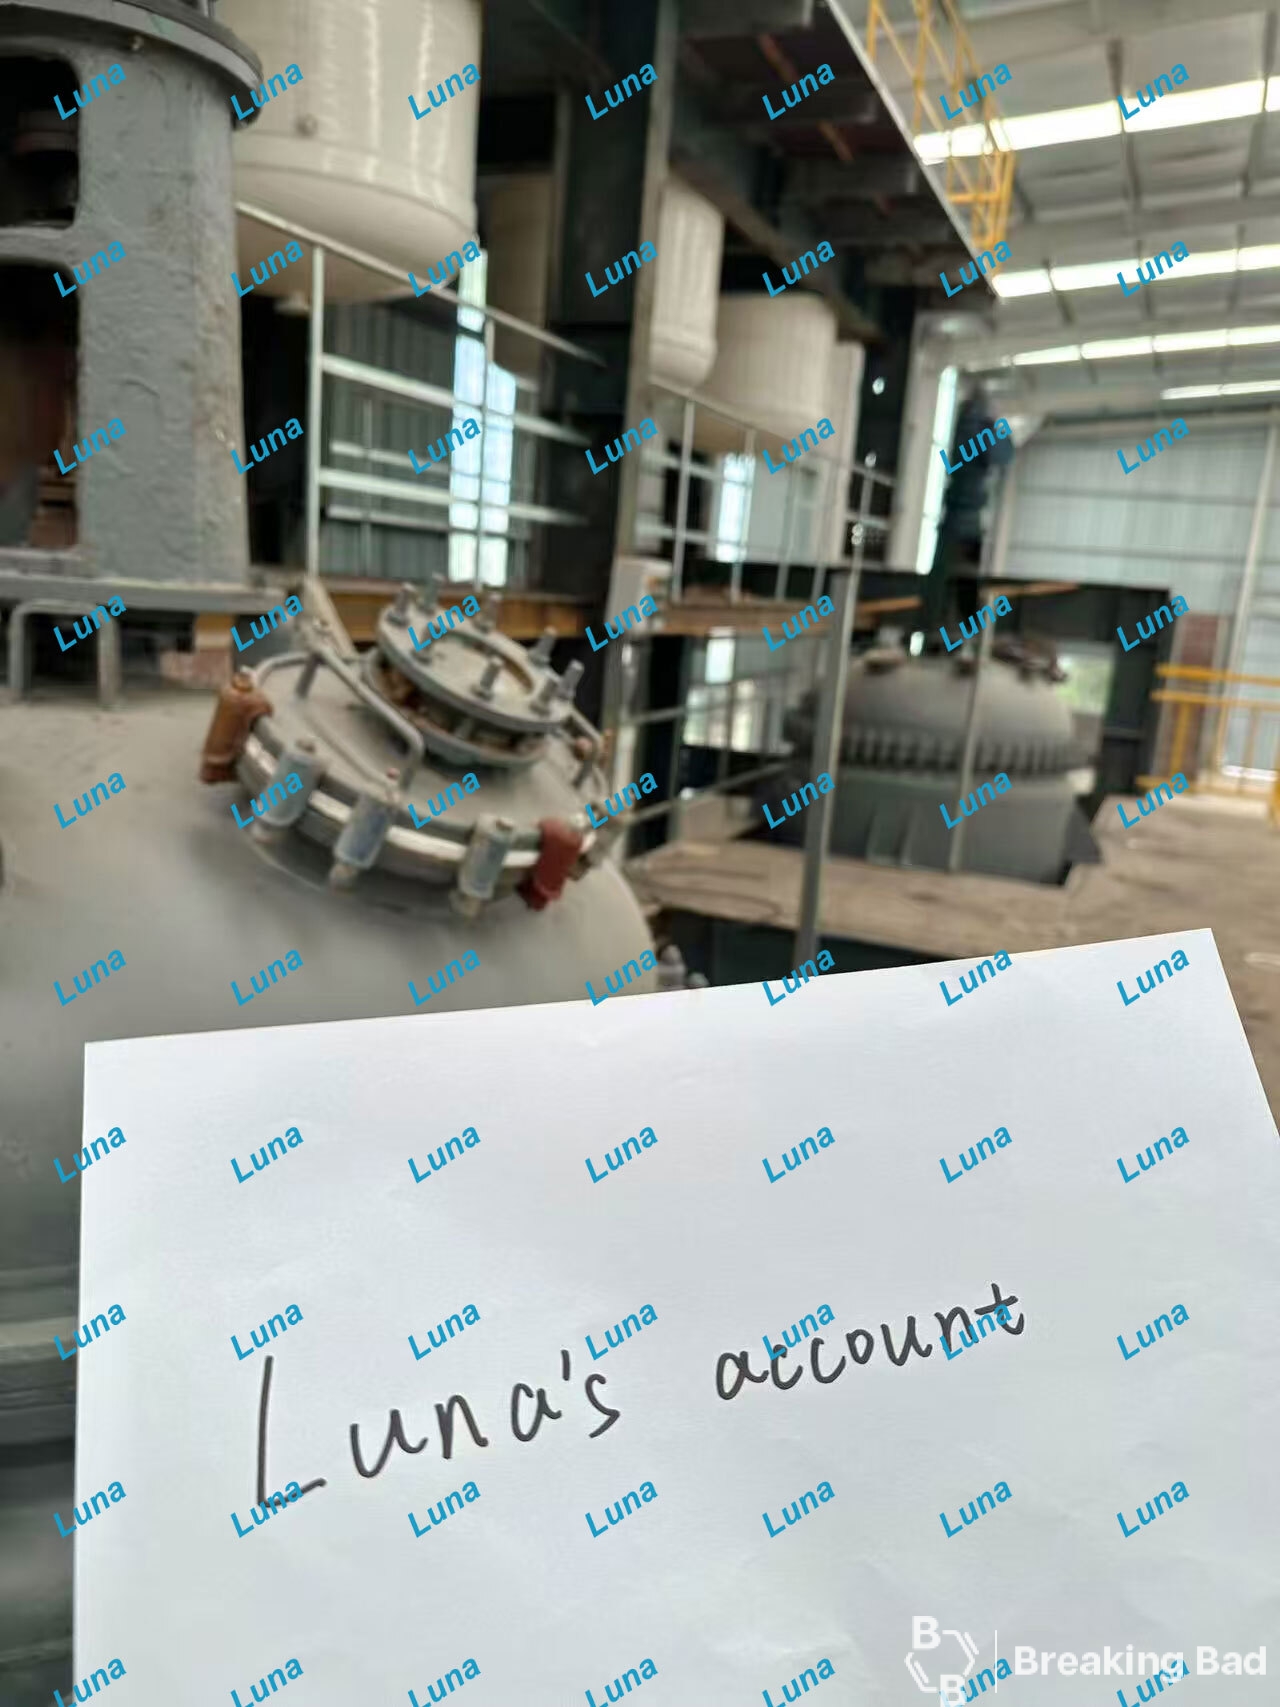 Luna Luna Luna Luna Luna Luna Luna
Luna Luna Luna Luna Luna Luna Luna
Luna Luna Luna Luna Luna Luna Luna
Luna Luna Luna Luna Luna Luna Luna
Luna Luna Luna Luna Luna Luna Luna
Luna Luna Luna Luna Luna Luna Luna
Luna Luna Luna Luna Luna Luna Luna
Luna Luna Luna Luna Luna Luna Luna
Luna's account
Luna Luna Luna Luna Luna Luna Luna
Luna Luna Luna Luna Luna Luna Luna
B
B
Breaking Bad